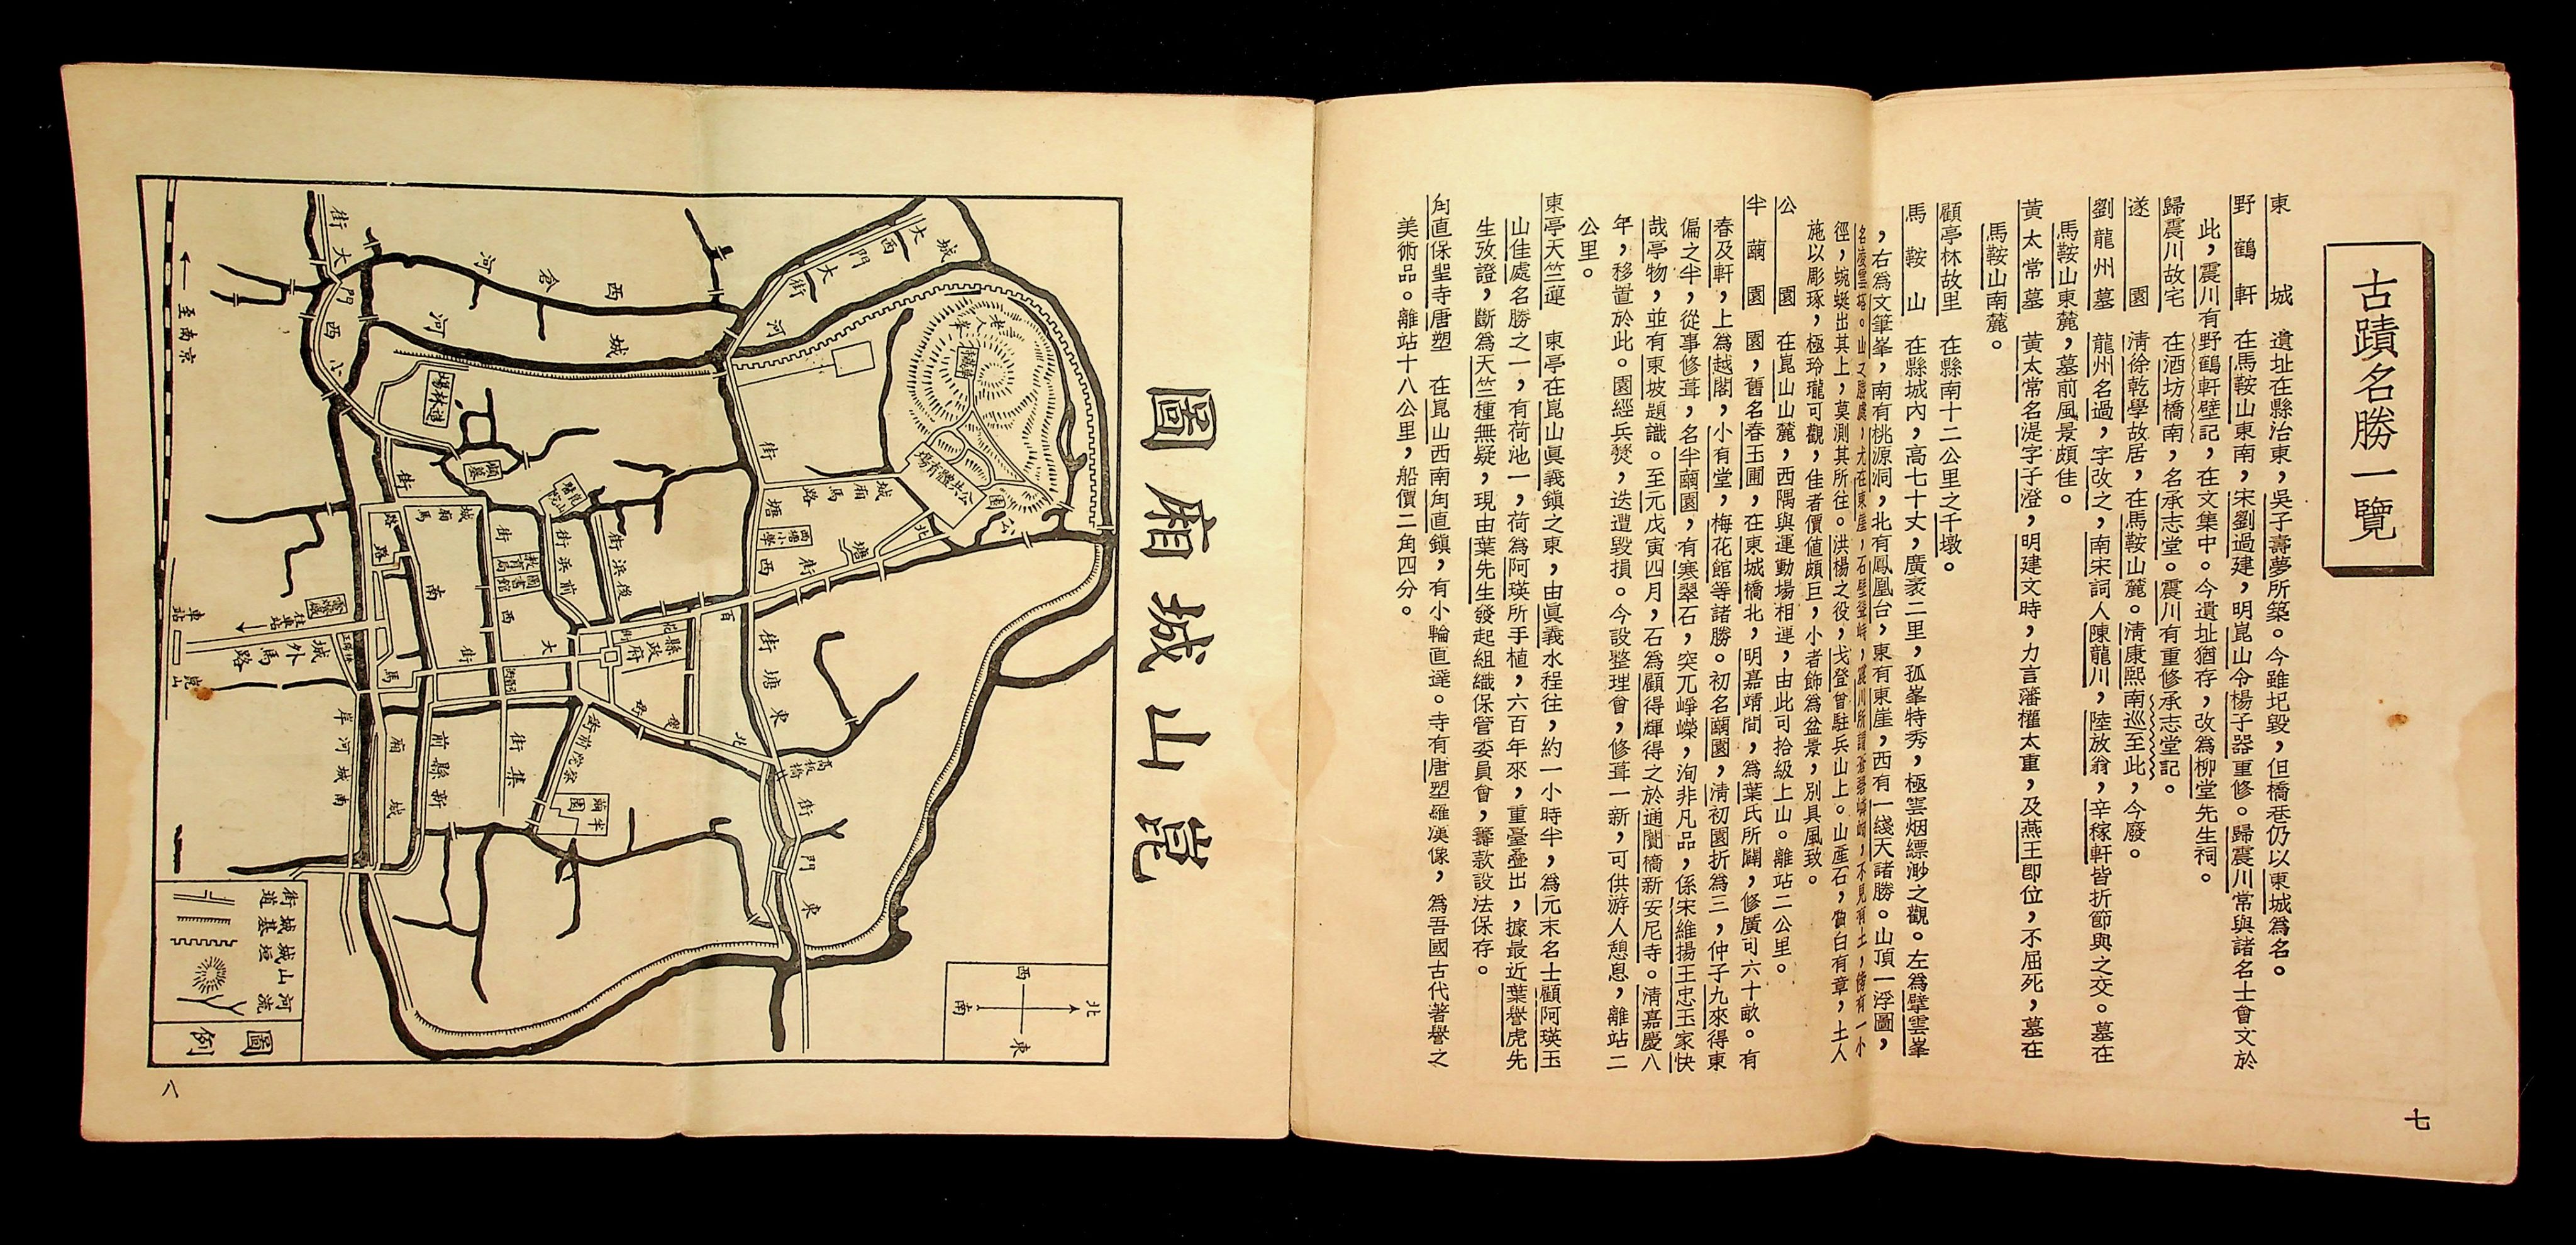 古蹟名勝一覽
東城　遺址在縣治東，吳子壽夢所築。今雖圮毀，但橋巷仍以東城為名。
野鶴軒　在馬鞍山東南，宋劉過建，明崑山令楊子器重修。歸震川常與諸名士會文於
此，震川有野鶴軒壁記，在文集中。今遺址猶存，改為柳堂先生祠。
歸震川故宅　在酒坊橋南，名承志堂。震川有重修承志堂記。
遂園　清徐乾學故居，在馬鞍山麓。清康熙南巡至此，今廢。
劉龍州墓　龍州名過，字改之，南宋詞人陳龍川，陸放翁，辛稼軒皆折節與之交。墓在
馬鞍山東麓，墓前風景頗佳。
黃太常墓　黃太常名湜字子澄，明建文時，力言藩權太重，及燕王即位，不屈死，墓在
馬鞍山南麓。
顧亭林故里　在縣南十二公里之千墩。
馬鞍山　在縣城內，高七十丈，廣袤二里，孤峯特秀，極雲烟縹渺之觀。左為擘雲峯
，右為文筆峯，南有桃源洞，北有鳳凰台，東有東崖，西有一綫天諸勝。山頂一浮圖，
名凌雲塔。山之勝處，尤在東崖，石壁聳峙，震川所謂蒼碧嶙峋，不見有土，傍有一小
徑，蜿蜒出其上，莫測其所往。洪楊之役，戈登曾駐兵山上。山產石，瑩白有章，土人
施以彫琢，極玲瓏可觀，佳者價值頗巨，小者飾為盆景，別具風致。
公園　在崑山山麓，西隅與運動場相連，由此可拾級上山。離站二公里。
半繭園　園，舊名春玉圃，在東城橋北，明嘉靖間，為葉氏所闢，修廣可六十畝。有
春及軒，上為越閣，小有堂，梅花館等諸勝。初名繭園，清初園折為三，仲子九來得東
偏之半，從事修葺，名半繭園，有寒翠石，突兀崢嶸，洵非凡品，係宋維揚王忠玉家快
哉亭物，並有東坡題識。至元戊寅四月，石為顧得輝得之於通闤橋新安尼寺。清嘉慶八
年，移置於此。園經兵燹，迭遭毀損。今設整理會，修葺一新，可供游人憩息，離站二
公里。
東亭天竺蓮　東亭在崑山眞義鎮之東，由眞義水程往，約一小時半，為元末名士顧阿瑛玉
山佳處名勝之一，有荷池一，荷為阿瑛所手植，六百年來，重臺叠出，據最近葉譽虎先
生攷證，斷為天竺種無疑，現由葉先生發起組織保管委員會，籌款設法保存。
甪直保聖寺唐塑　在崑山西南甪直鎮，有小輪直達。寺有唐塑羅漢像，為吾國古代著譽之
美術品。離站十八公里，船價二角四分。
七
崑山城廂圖
北
西
東
南
大西門大街
城河
西倉河
城河
大西門小街
至南京
老人峯
公共體育場
公園
城廂馬路
北塘街
西塘小學
西塘街
東塘街
縣政府
後浜街
前浜街
圖書館
教育局
西大街
南街
城廂馬路
往車站
車站
崑山
城外馬路
南城河岸
新縣前
集街
高板橋
東門街
半繭園
顧墓
圖例
街道
城基
城垣
山
河流
八